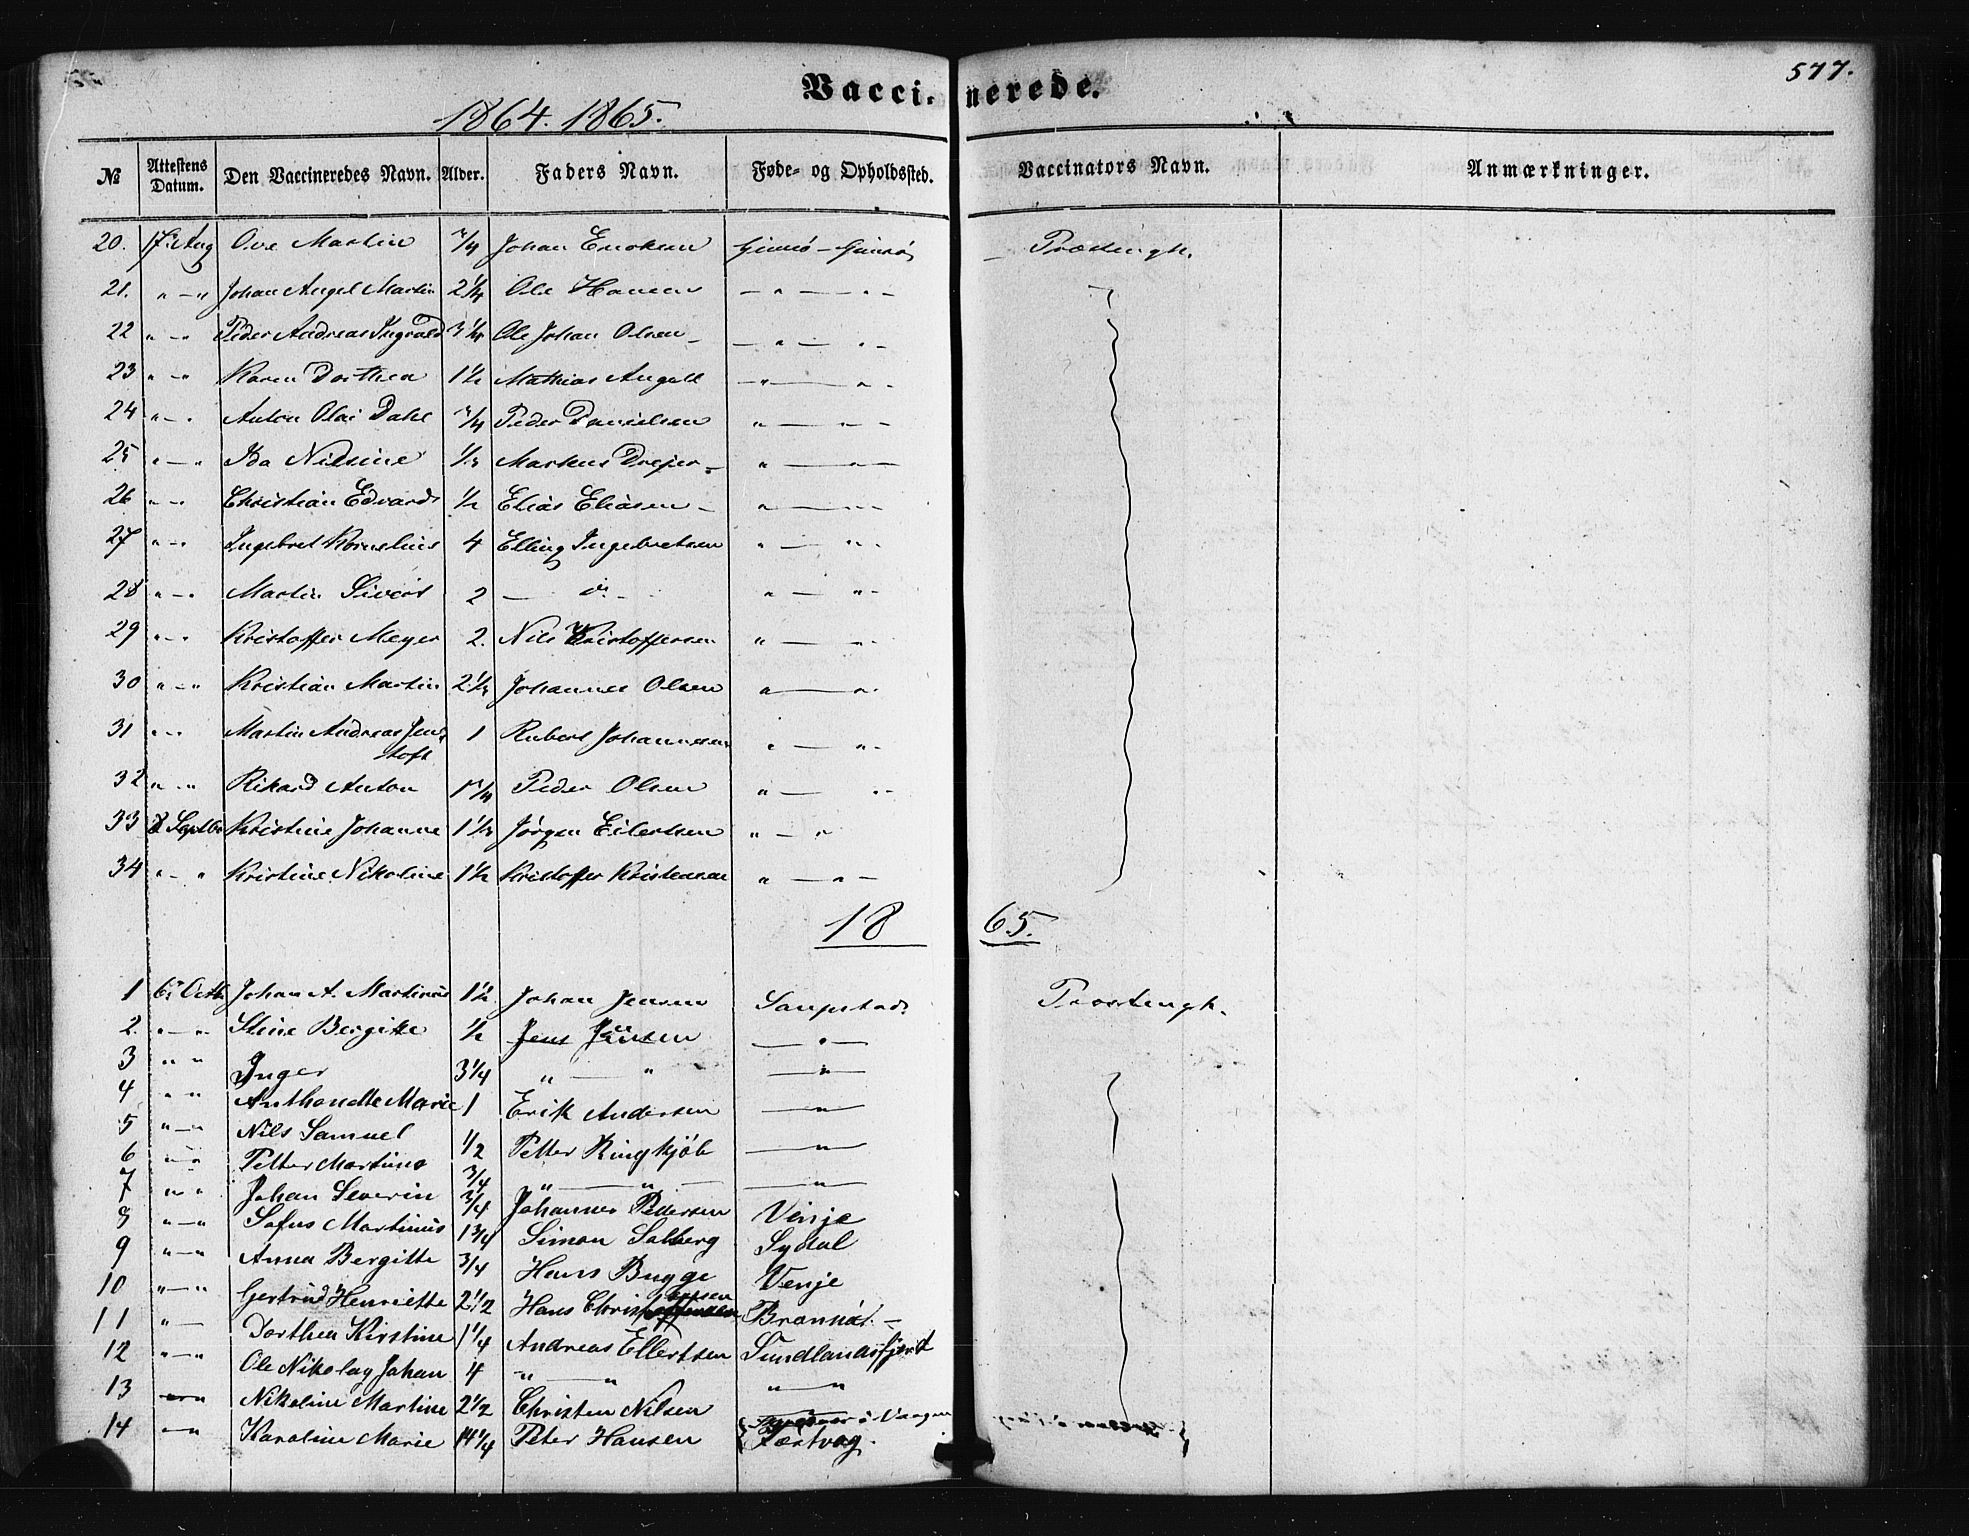 577.
Vaccinerede.
1864. 1865.
№ Attestens Datum. Den Vaccineredes Navn. Alder. Faders Navn. Føde- og Opholdssted. Vaccinators Navn. Anmærkninger.
20. 17 Aug Ove Martin 3/4 Johan Enoksen Gimsø - Gimsø
21. " — " Johan Angel Martin 2 1/4 Ole Hansen — " — " —
22 " — " Peder Andreas Ingvald 3 1/4 Ole Johan Olsen — " — " —
23 " — " Karen Dorthea 1 1/2 Mathias Angell — " — " —
24 " — " Anton Olai Dahl 3/4 Peder Danielsen " — " —
25 " — " Ida Nilsine 1/3 Markus Drejer " — " —
26 " — " Christian Edvard 1/2 Elias Eliasen " — " —
27 " — " Ingebret Kornelius 4 Elling Ingebretsen " — " —
28 " — " Martin Sivert 2 — do — " — " —
29 " — " Kristoffer Meyer 2. Nils Kristoffersen " — " —
30 " — " Kristian Martin 2 1/3 Johannes Olsen " — " —
31 " — " Martin Andreas Jen- 1 Rubert Johannesen " — " —
stoft
32 " — " Rikard Anton 1 3/4 Peder Olsen " — " —
33 8 Septbr Kristine Johanne 1 1/3 Jørgen Eilertsen " — "
34 " — " Kristine Nikoline 1 1/2 Kristoffer Kristensen " — " —
1865.
1 6 Octb Johan A. Martinus 1 1/2 Johan Jensen
2. " — " Stine Bergitte 1/2 Jens Jensen — " —
3 " " Inger 3 1/4 " — " — " —
4 " " Anthonette Marie 1 Erik Andersen — " —
5 " — " Nils Samuel 1/2 Petter Ringkjøb — " —
6 " — " Petter Martinus 3/4 " — " — — " —
7 " " Johan Severin 3/4 Johannes Pedersen Venje
8 " — " Sofus Martinus 1 3/4 Simon Solberg Sydal
9 " — " Anna Bergitte 3/4 Hans Bugge Venje
10 " — " Gertrud Henriette 2 1/2 Hans Christensen
11 " — Dorthea Kirstine 1 1/4 Andreas Ellertsen Sundlandsfjord
12 " — " Ole Nikolay Johan 4 " — " " — "
13 " — " Nikoline Martine 2 1/2 Christen Nilsen
14 " — " Karoline Marie 14 1/4 Peter Hansen